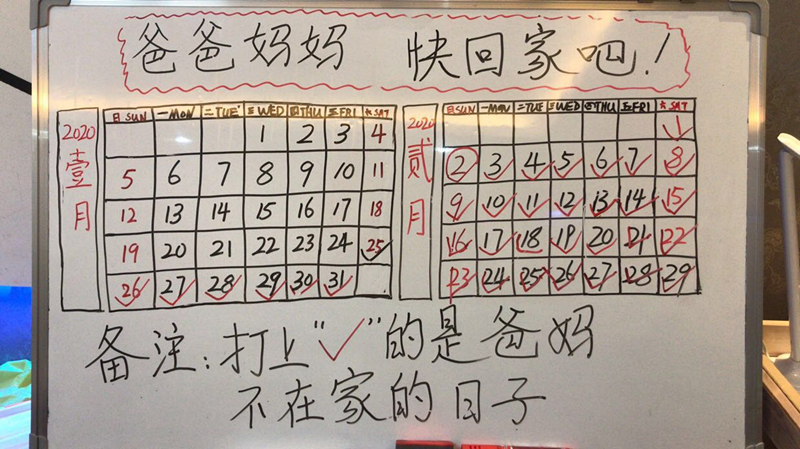 爸爸妈妈 快回家吧!
2020 壹月
日SUN 一MON 二TUE 三WED 四THU 五FRI 六SAT
1 2 3 4
5 6 7 8 9 10 11
12 13 14 15 16 17 18
19 20 21 22 23 24 25
26 27 28 29 30 31
2020 贰月
日SUN 一MON 二TUE 三WED 四THU 五FRI 六SAT
1
2 3 4 5 6 7 8
9 10 11 12 13 14 15
16 17 18 19 20 21 22
23 24 25 26 27 28 29
备注:打上“✓”的是爸妈
不在家的日子